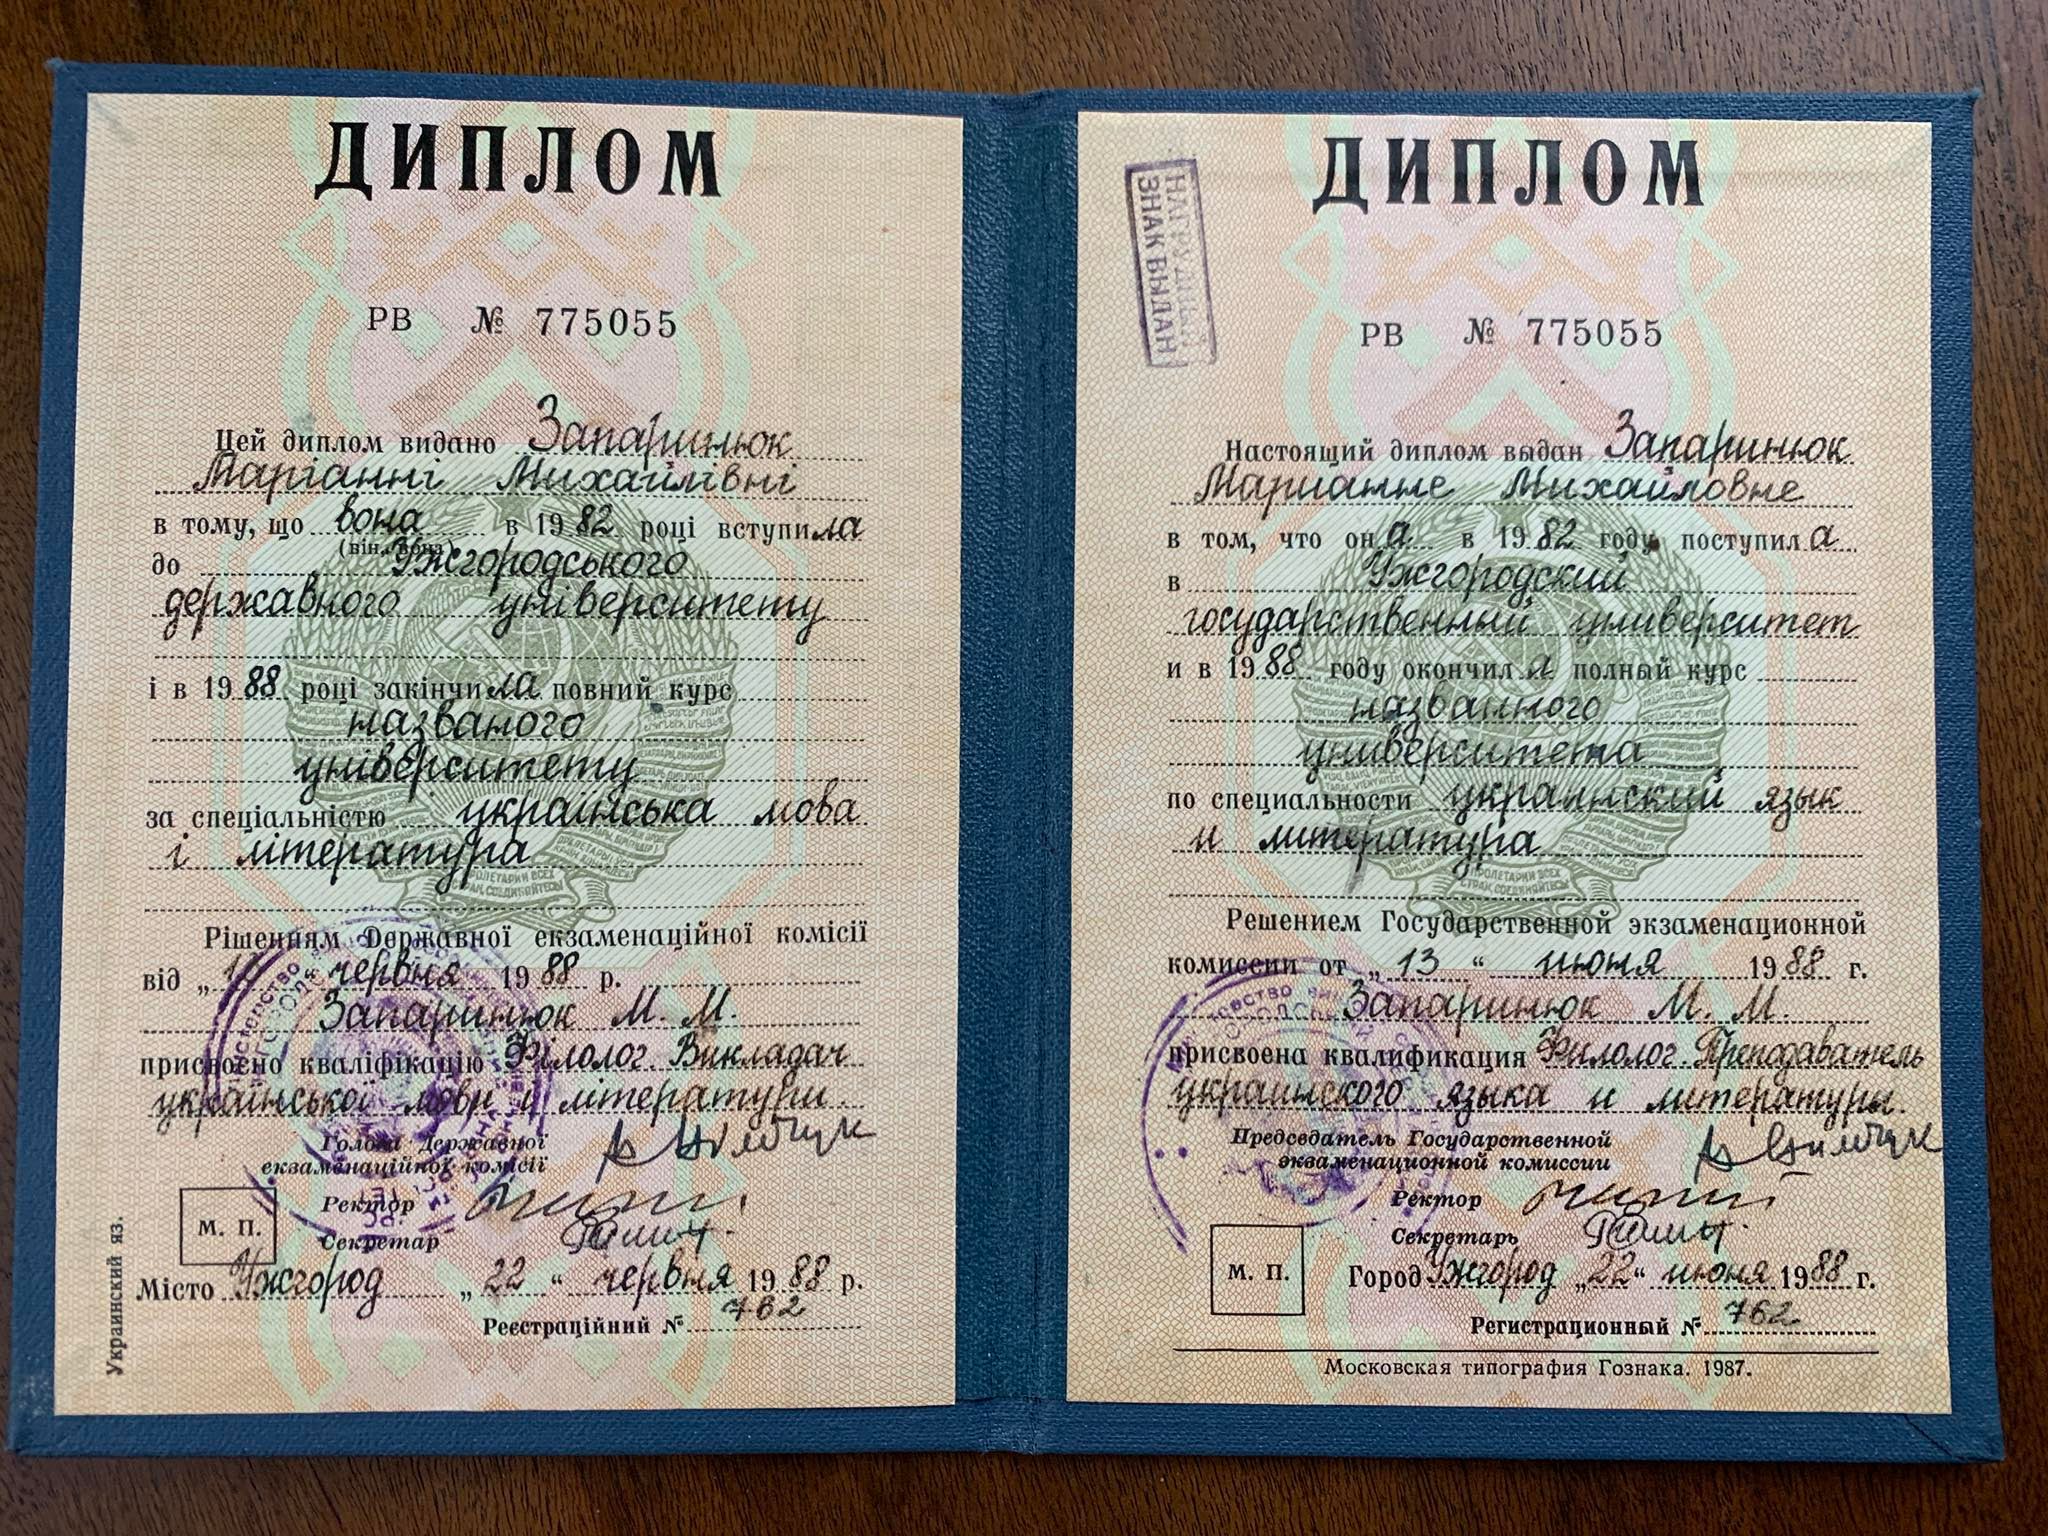 ДИПЛОМ
РВ № 775055
Цей диплом видано Запаринюк
Маріанні Михайлівні
в тому, що вона в 1982 році вступила
(він, вона)
до Ужгородського
державного університету
і в 1988 році закінчила повний курс
названого
університету
за спеціальністю українська мова
і література
Рішенням Державної екзаменаційної комісії
від „ “ червня 1988 р.
Запаринюк М. М.
присвоєно кваліфікацію Філолог. Викладач
української мови и літератури.
Голова Державної
екзаменаційної комісії
Ректор
Секретар
М. П.
Місто Ужгород „22“ червня 1988 р.
Реєстраційний № 762
Украинский яз.
ДИПЛОМ
НАГРУДНЫЙ
ЗНАК ВЫДАН
РВ № 775055
Настоящий диплом выдан Запаринюк
Марианне Михайловне
в том, что она в 1982 году поступила
в Ужгородский
государственный университет
и в 1988 году окончила полный курс
названного
университета
по специальности украинский язык
и литература
Решением Государственной экзаменационной
комиссии от „13“ июня 1988 г.
Запаринюк М. М.
присвоена квалификация Филолог. Преподаватель
украинского языка и литературы.
Председатель Государственной
экзаменационной комиссии
Ректор
Секретарь
М. П.
Город Ужгород „22“ июня 1988 г.
Регистрационный № 762
Московская типография Гознака. 1987.